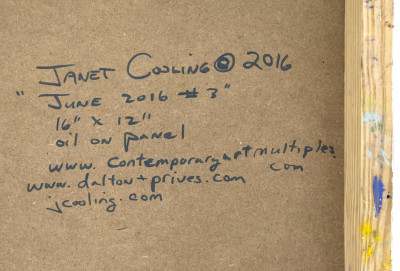 JANET COOLING © 2016
"JUNE 2016 #3"
16" x 12"
oil on panel
www.contemporaryartmultiples.
com
www.dalton+prives.com
jcooling.com